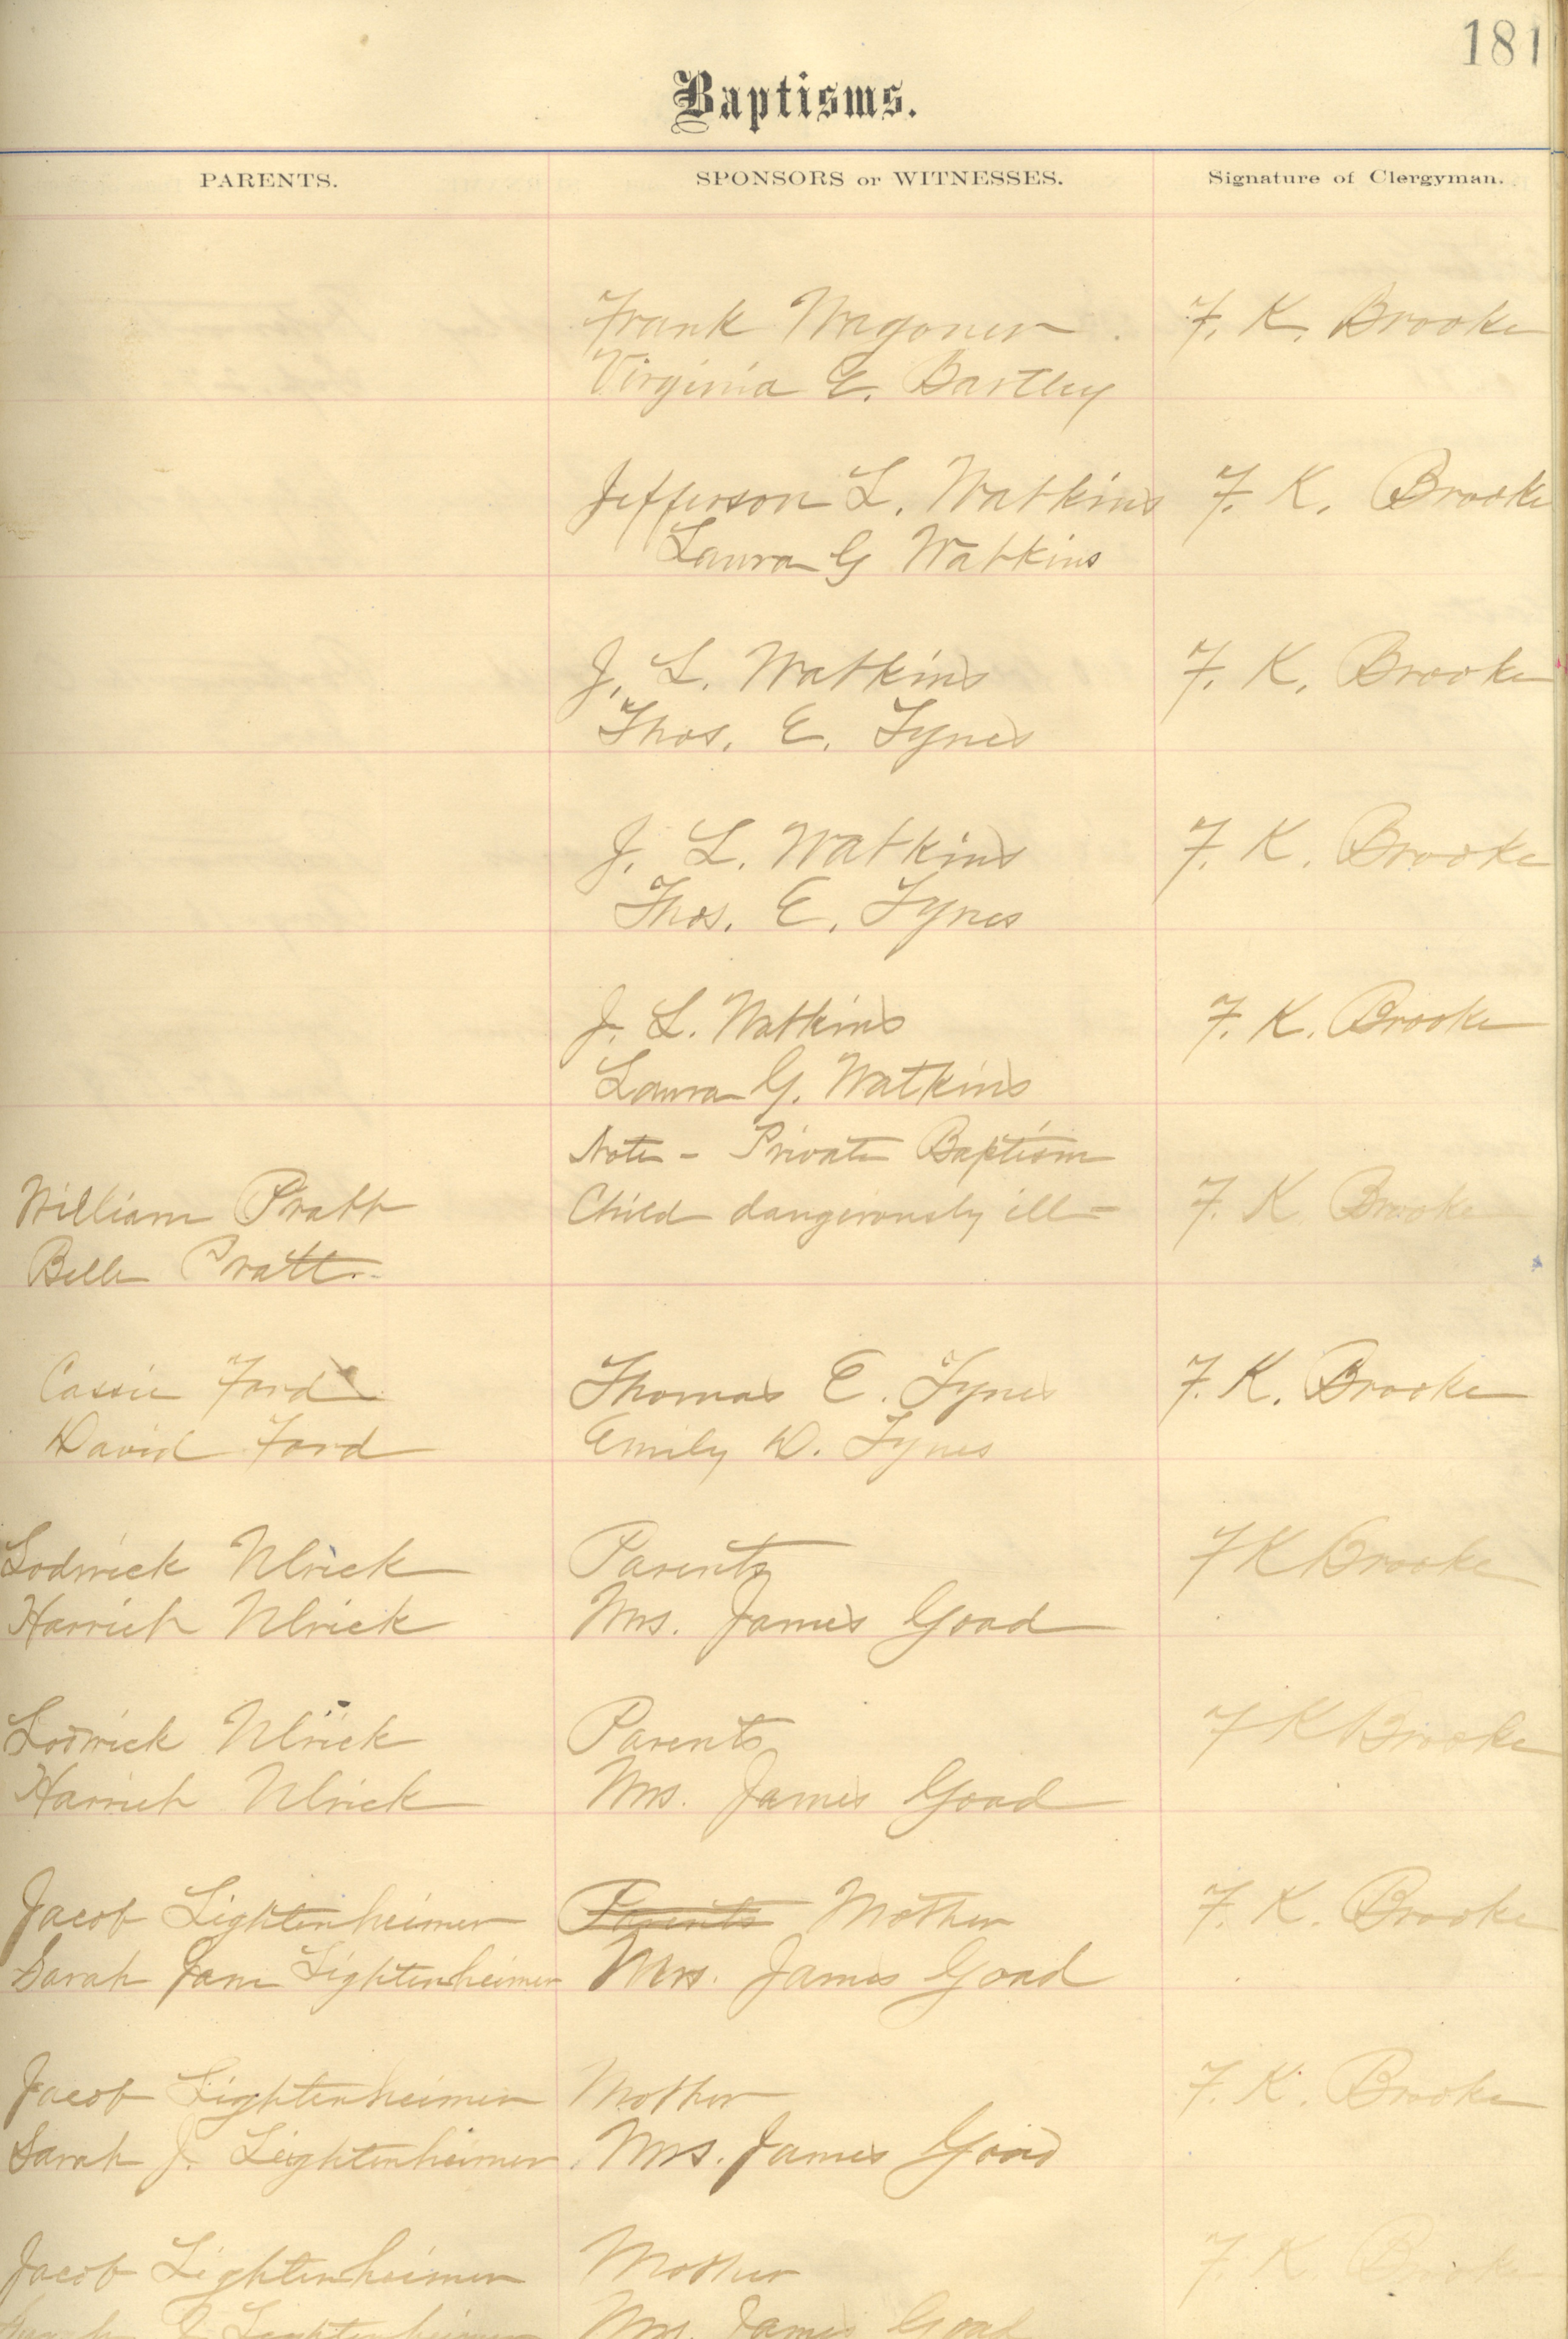 181
Baptisms.
PARENTS. SPONSORS or WITNESSES. Signature of Clergyman.
Frank Wagoner F. K. Brooke
Virginia E. Bartley
Jefferson L. Watkins F. K. Brooke
Laura G Watkins
J. L. Watkins F. K. Brooke
Thos. E. Tynes
J. L. Watkins F. K. Brooke
Thos. E. Tynes
J. L. Watkins F. K. Brooke
Laura G. Watkins
Note - Private Baptism
William Pratt Child dangerously ill - F. K. Brooke
Belle Pratt.
Cassie Ford Thomas E. Tynes F. K. Brooke
David Ford Emily D. Tynes
Lodwick Ulrick Parents F K Brooke
Harriet Ulrick Mrs. James Goad
Lodwick Ulrick Parents F K Brooke
Harriet Ulrick Mrs. James Goad
Jacob Lightenheimer Parents Mother F. K. Brooke
Sarah Jane Lightenheimer Mrs. James Goad
Jacob Lightenheimer Mother F. K. Brooke
Sarah J. Leightenheimer Mrs. James Goad
Jacob Lightenheimer Mother F. K. Brooke
Sarah J Lightenheimer Mrs. James Goad